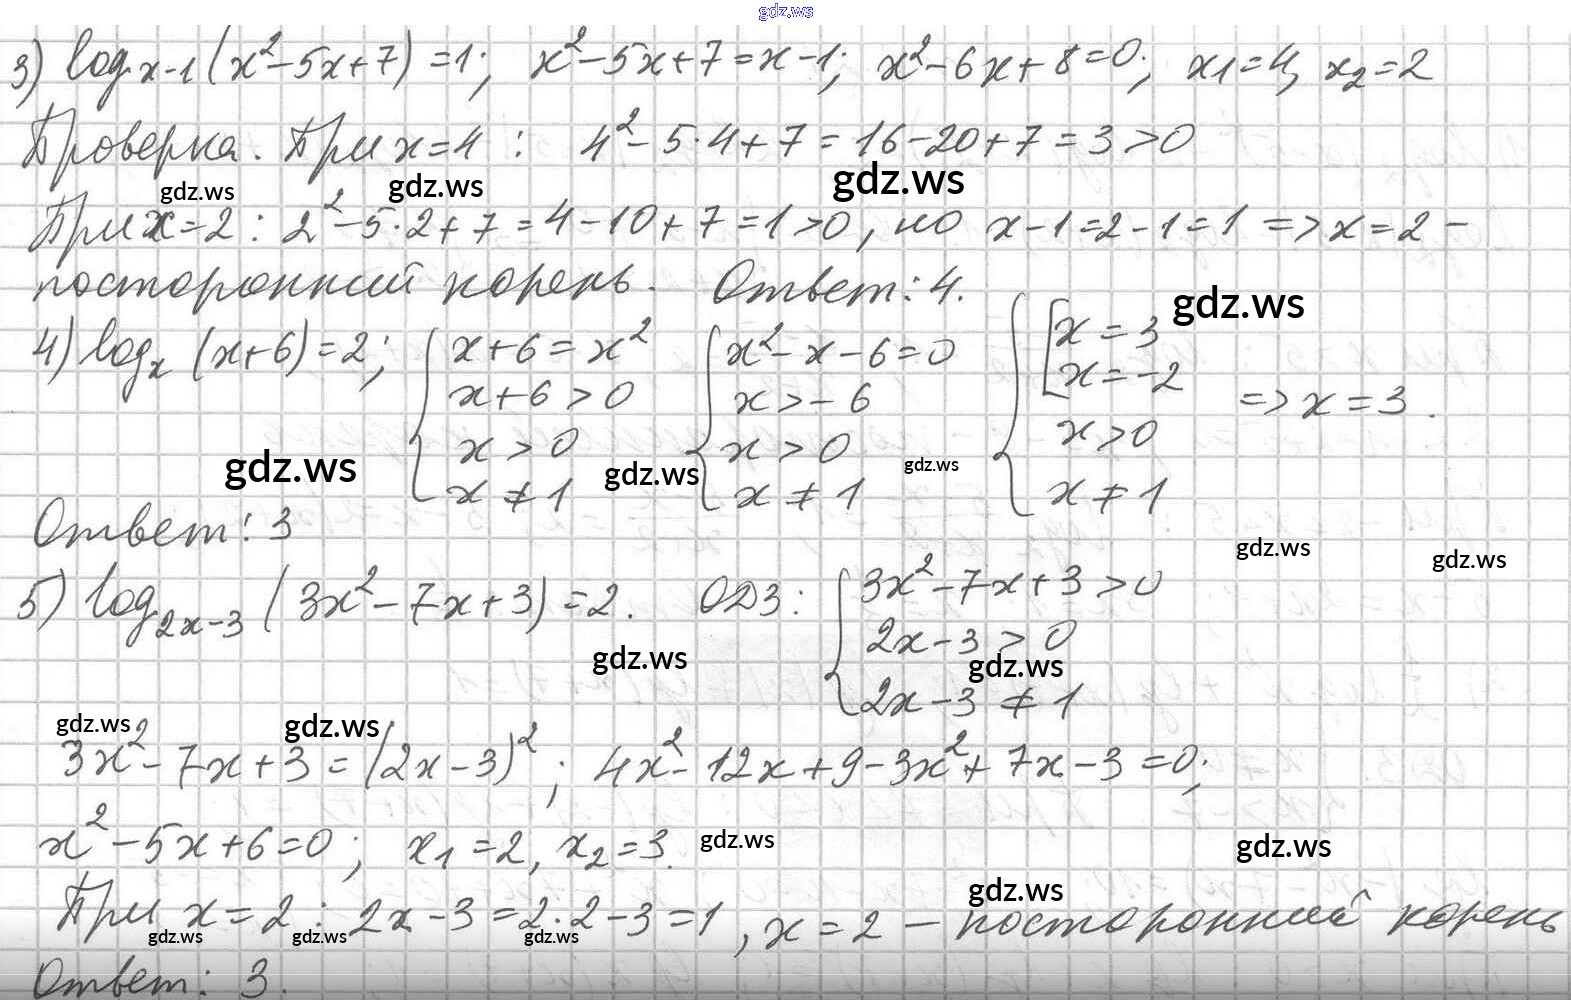 gdz.ws
3) log_{x-1}(x²-5x+7)=1; x²-5x+7=x-1; x²-6x+8=0; x₁=4, x₂=2
Проверка. При x=4: 4²-5·4+7=16-20+7=3>0
gdz.ws gdz.ws gdz.ws
При x=2: 2²-5·2+7=4-10+7=1>0, но x-1=2-1=1 => x=2 -
посторонний корень. Ответ: 4.
gdz.ws
4) log_x (x+6)=2; { x+6=x² { x²-x-6=0 { [ x=3
x+6>0 x>-6 x=-2 => x=3.
x>0 x>0 x>0
x≠1 x≠1 x≠1
gdz.ws gdz.ws gdz.ws
Ответ: 3
gdz.ws gdz.ws
5) log_{2x-3} (3x²-7x+3)=2. ОДЗ: { 3x²-7x+3>0
2x-3>0
gdz.ws gdz.ws
2x-3≠1
gdz.ws gdz.ws
3x²-7x+3=(2x-3)²; 4x²-12x+9-3x²+7x-3=0;
x²-5x+6=0; x₁=2, x₂=3.
gdz.ws gdz.ws
gdz.ws
При x=2: 2x-3=2·2-3=1, x=2 – посторонний корень
gdz.ws gdz.ws gdz.ws
Ответ: 3.